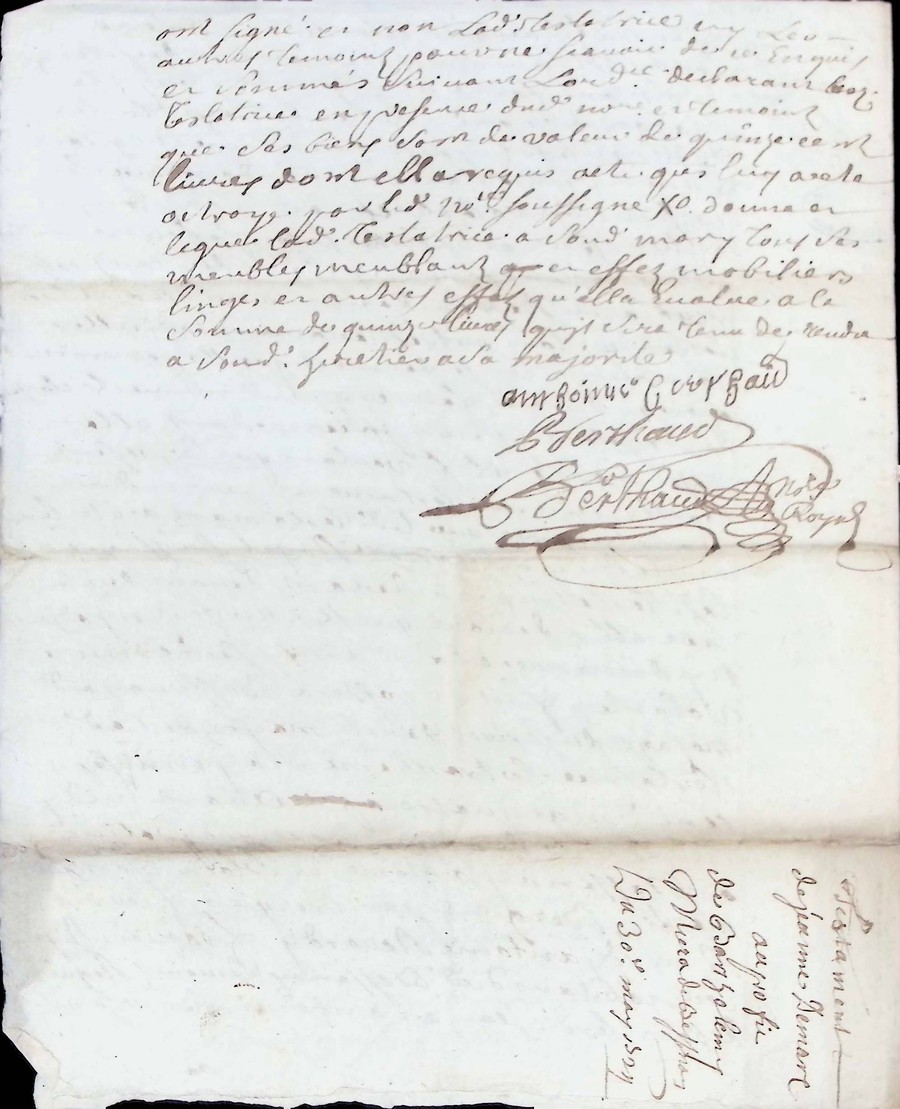 ont signé et non Lad. testatrice ny Les
autres temoins pour ne scavoir de ce Enquis
et sommés suivant Lord.ce declarant
testatrice en presence dud. no.re et temoins
que ses biens sont de valeur de quinze cent
livres dont ella requis acte que luy a este
octroye par led. no.re soussigne Xo. donne et
legue lad. testatrice a sond. mary tous ses
meubles meublant et effez mobiliers
linges et autres effez qu'ella Evalue a la
somme de quinze livres quil sera tenu de rendre
a sond. heretier a sa majorite
anthoine
Berthaud
Berthaud no.re Royal
Testament
de jeanne Demare
au profit
de Bartzolemy

Du 30.e may